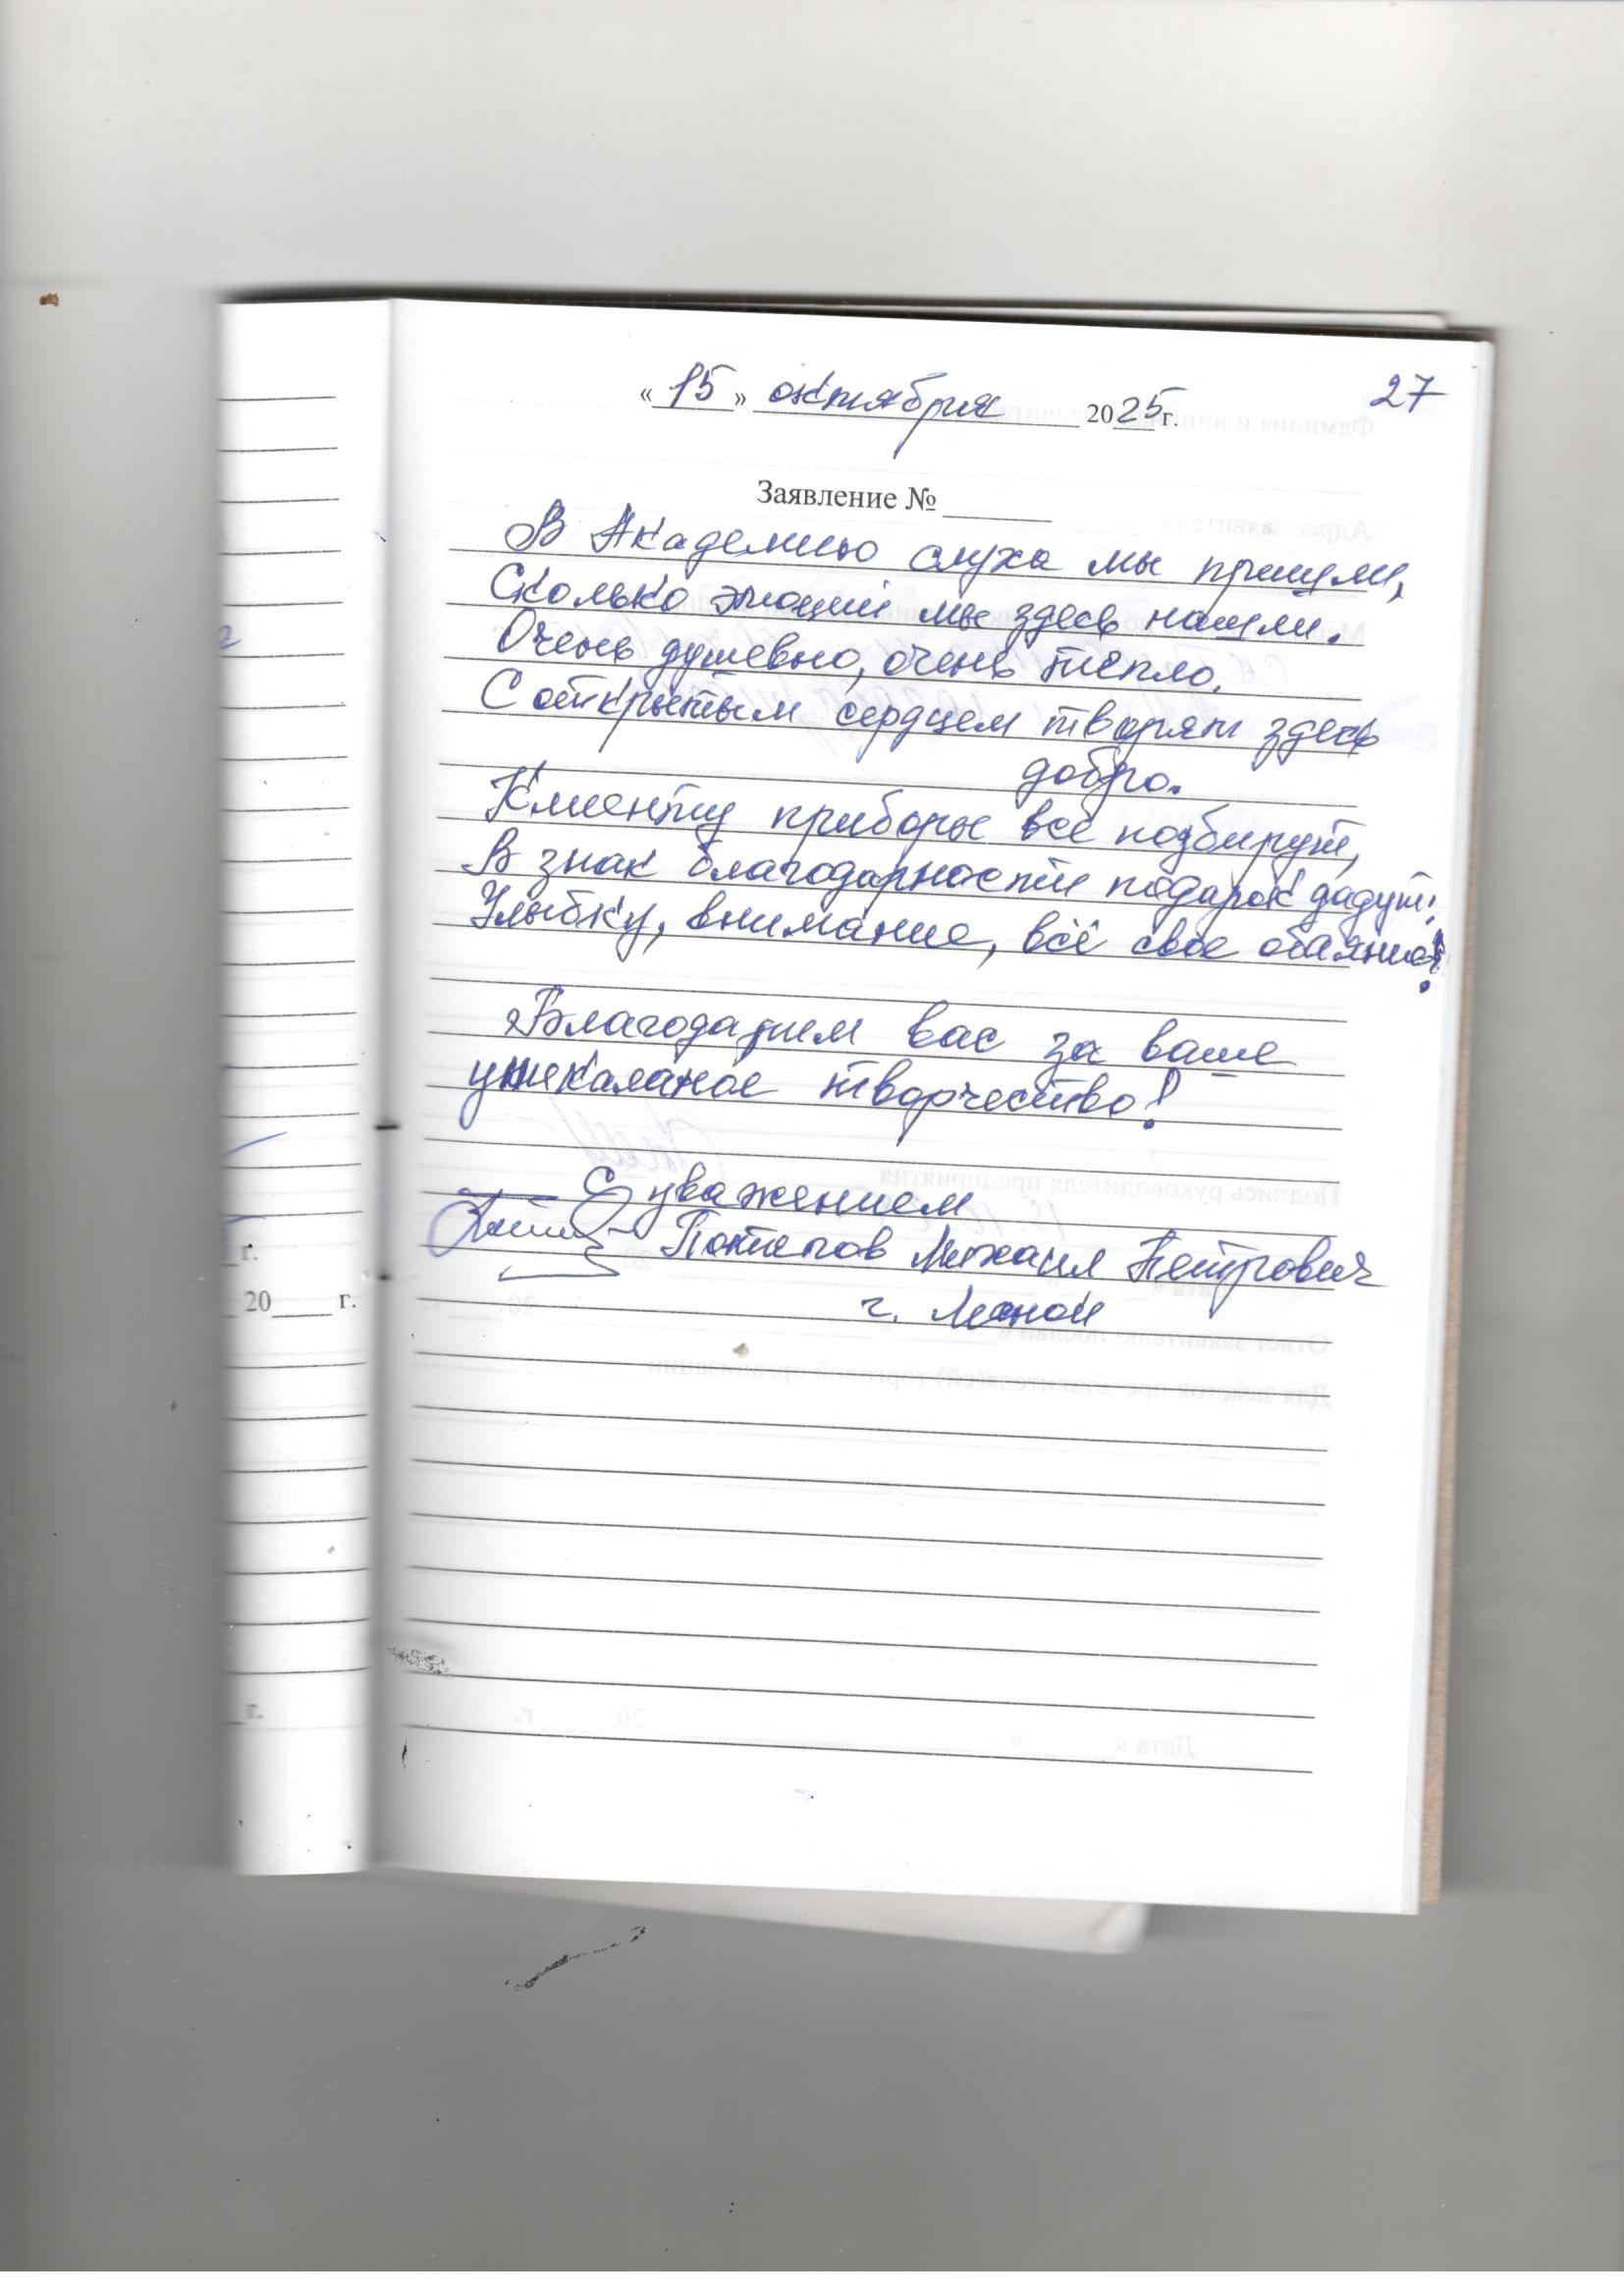 27
«15» октября 2025 г.
Заявление №
В Академию слуха мы пришли,
Сколько эмоций мы здесь нашли.
Очень душевно, очень тепло.
С открытым сердцем творят здесь
добро.
Клиенту приборы всё подбирут,
В знак благодарности подарок дадут:
Улыбку, внимание, всё своё обаяние!
Благодарим вас за ваше
уникальное творчество!
С уважением
Потапов Михаил Петрович
г.
г.
20 г.
г.